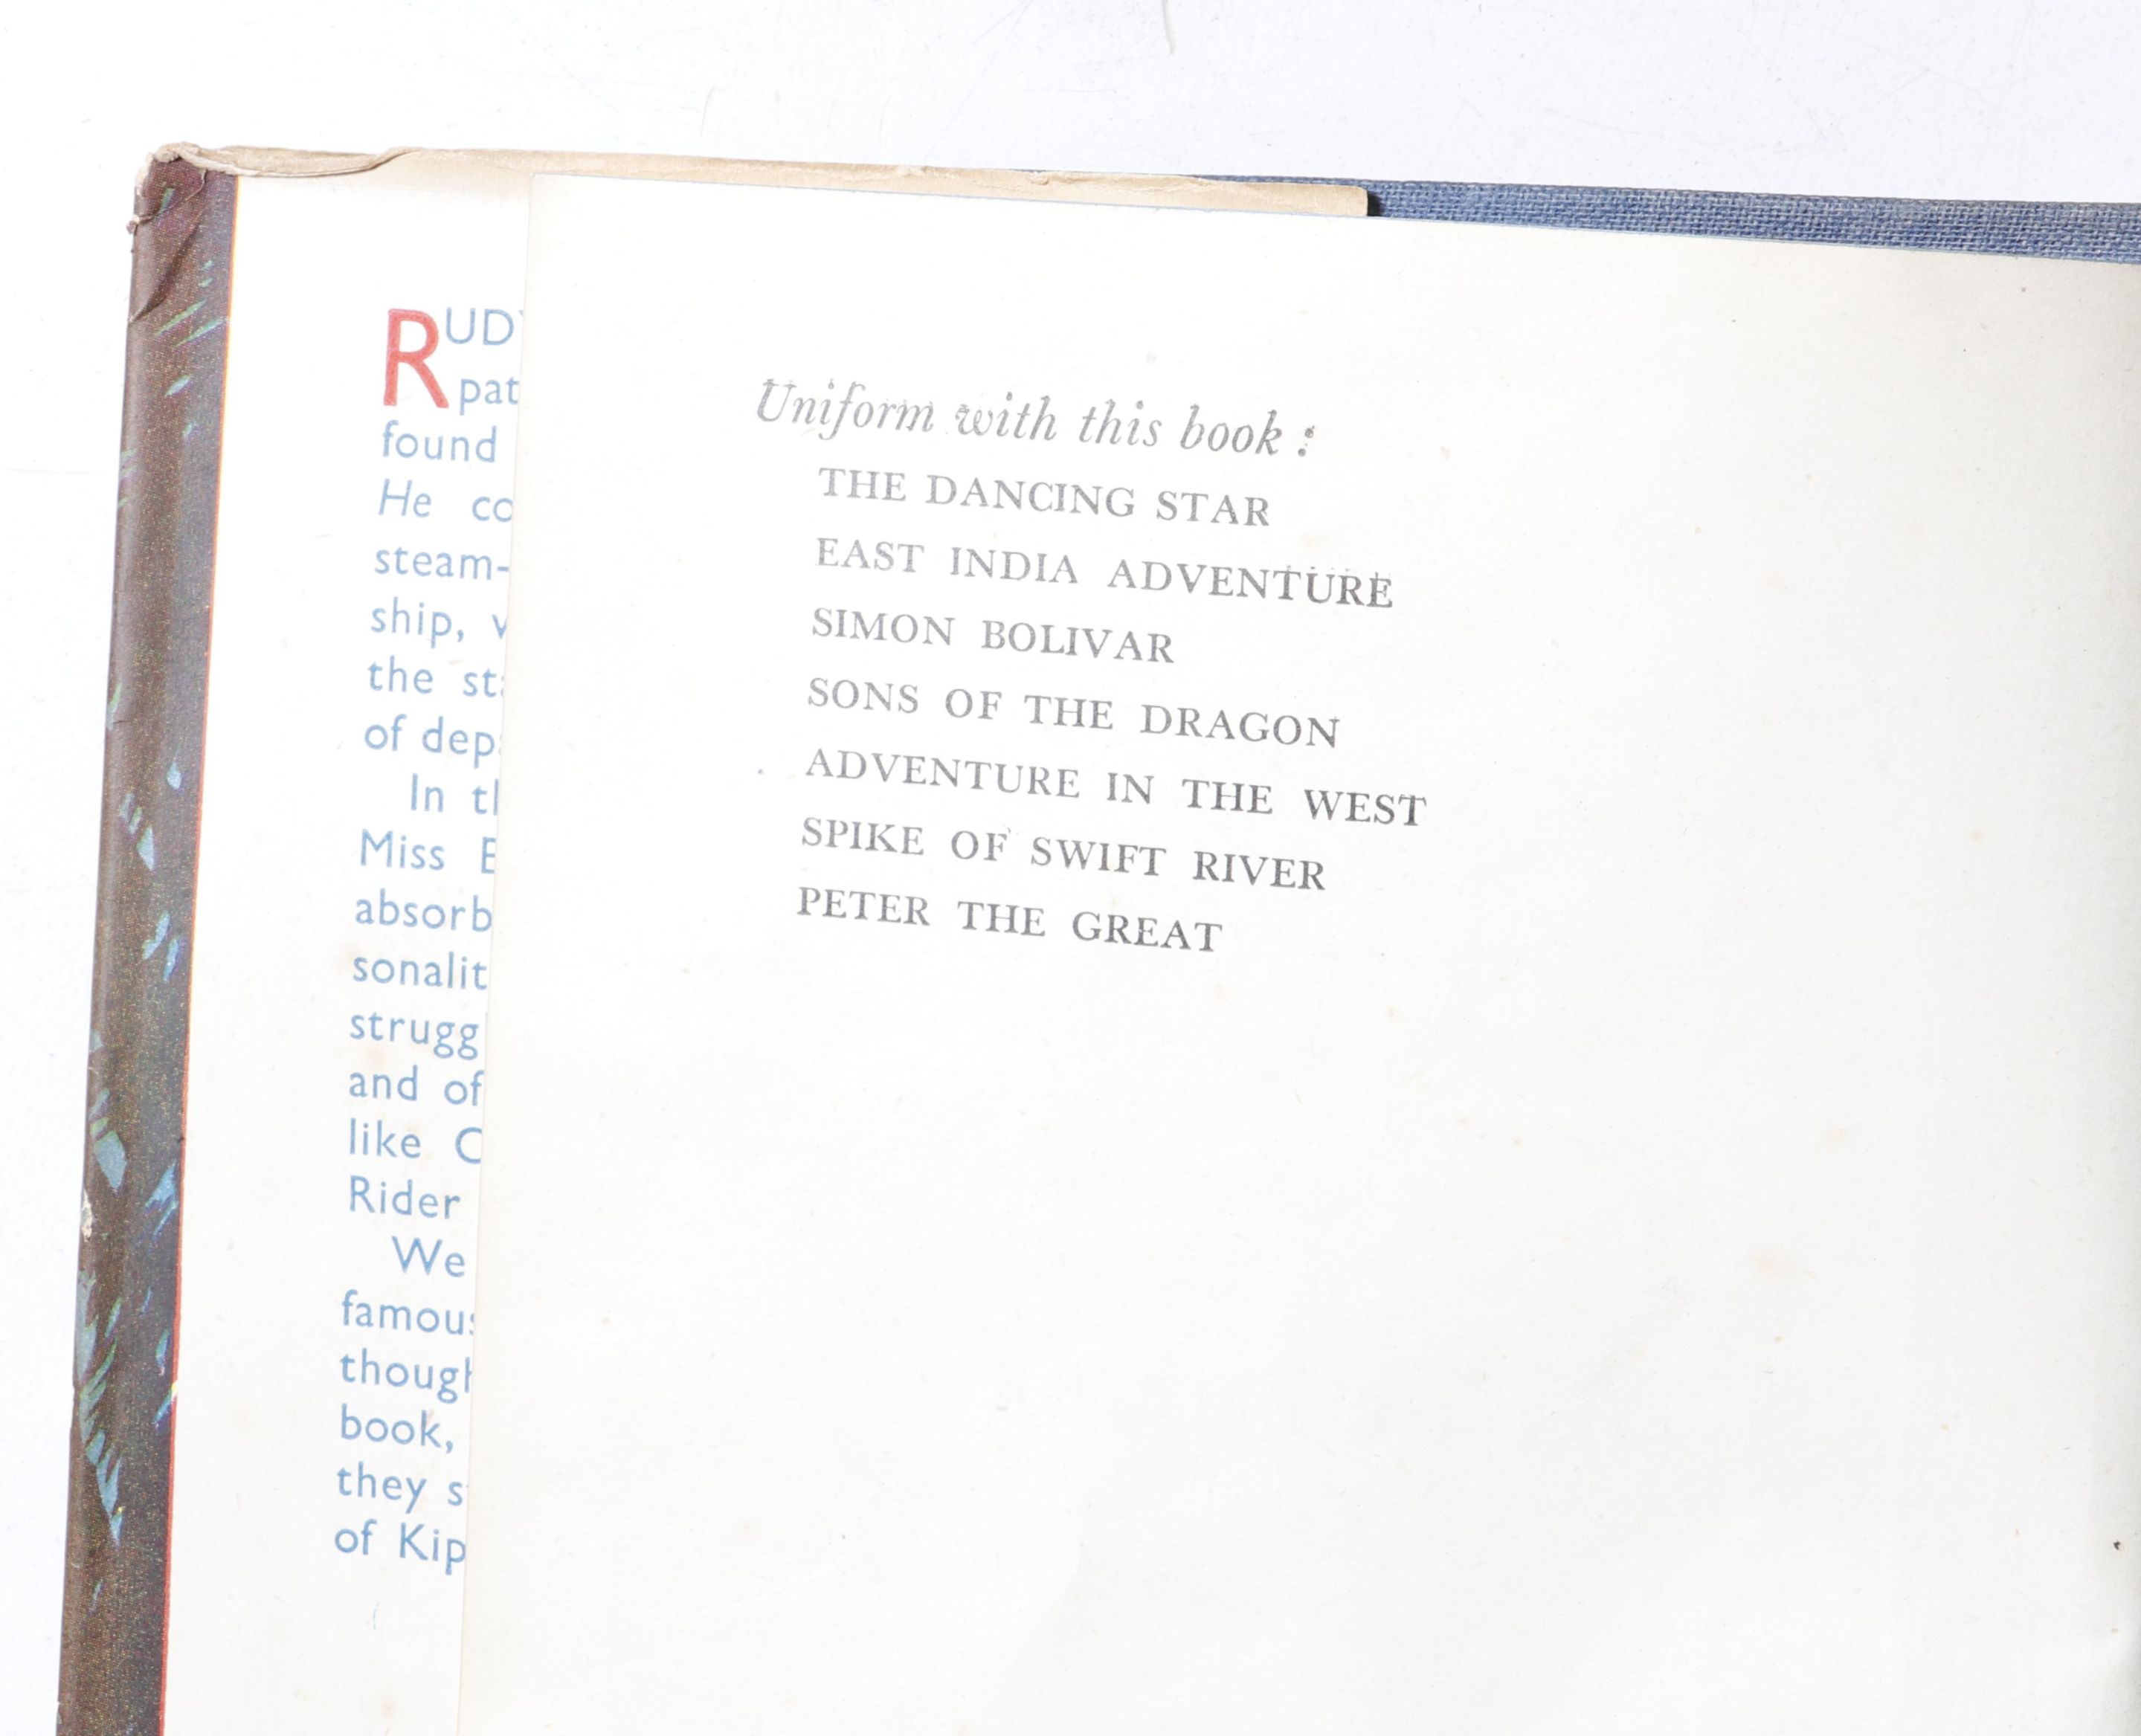 RUDY
pat
found
He co
steam-
ship, v
the sta
of dep
In th
Miss B
absorb
sonalit
strugg
and of
like C
Rider
We
famous
though
book,
they s
of Kip
Uniform with this book :
THE DANCING STAR
EAST INDIA ADVENTURE
SIMON BOLIVAR
SONS OF THE DRAGON
ADVENTURE IN THE WEST
SPIKE OF SWIFT RIVER
PETER THE GREAT